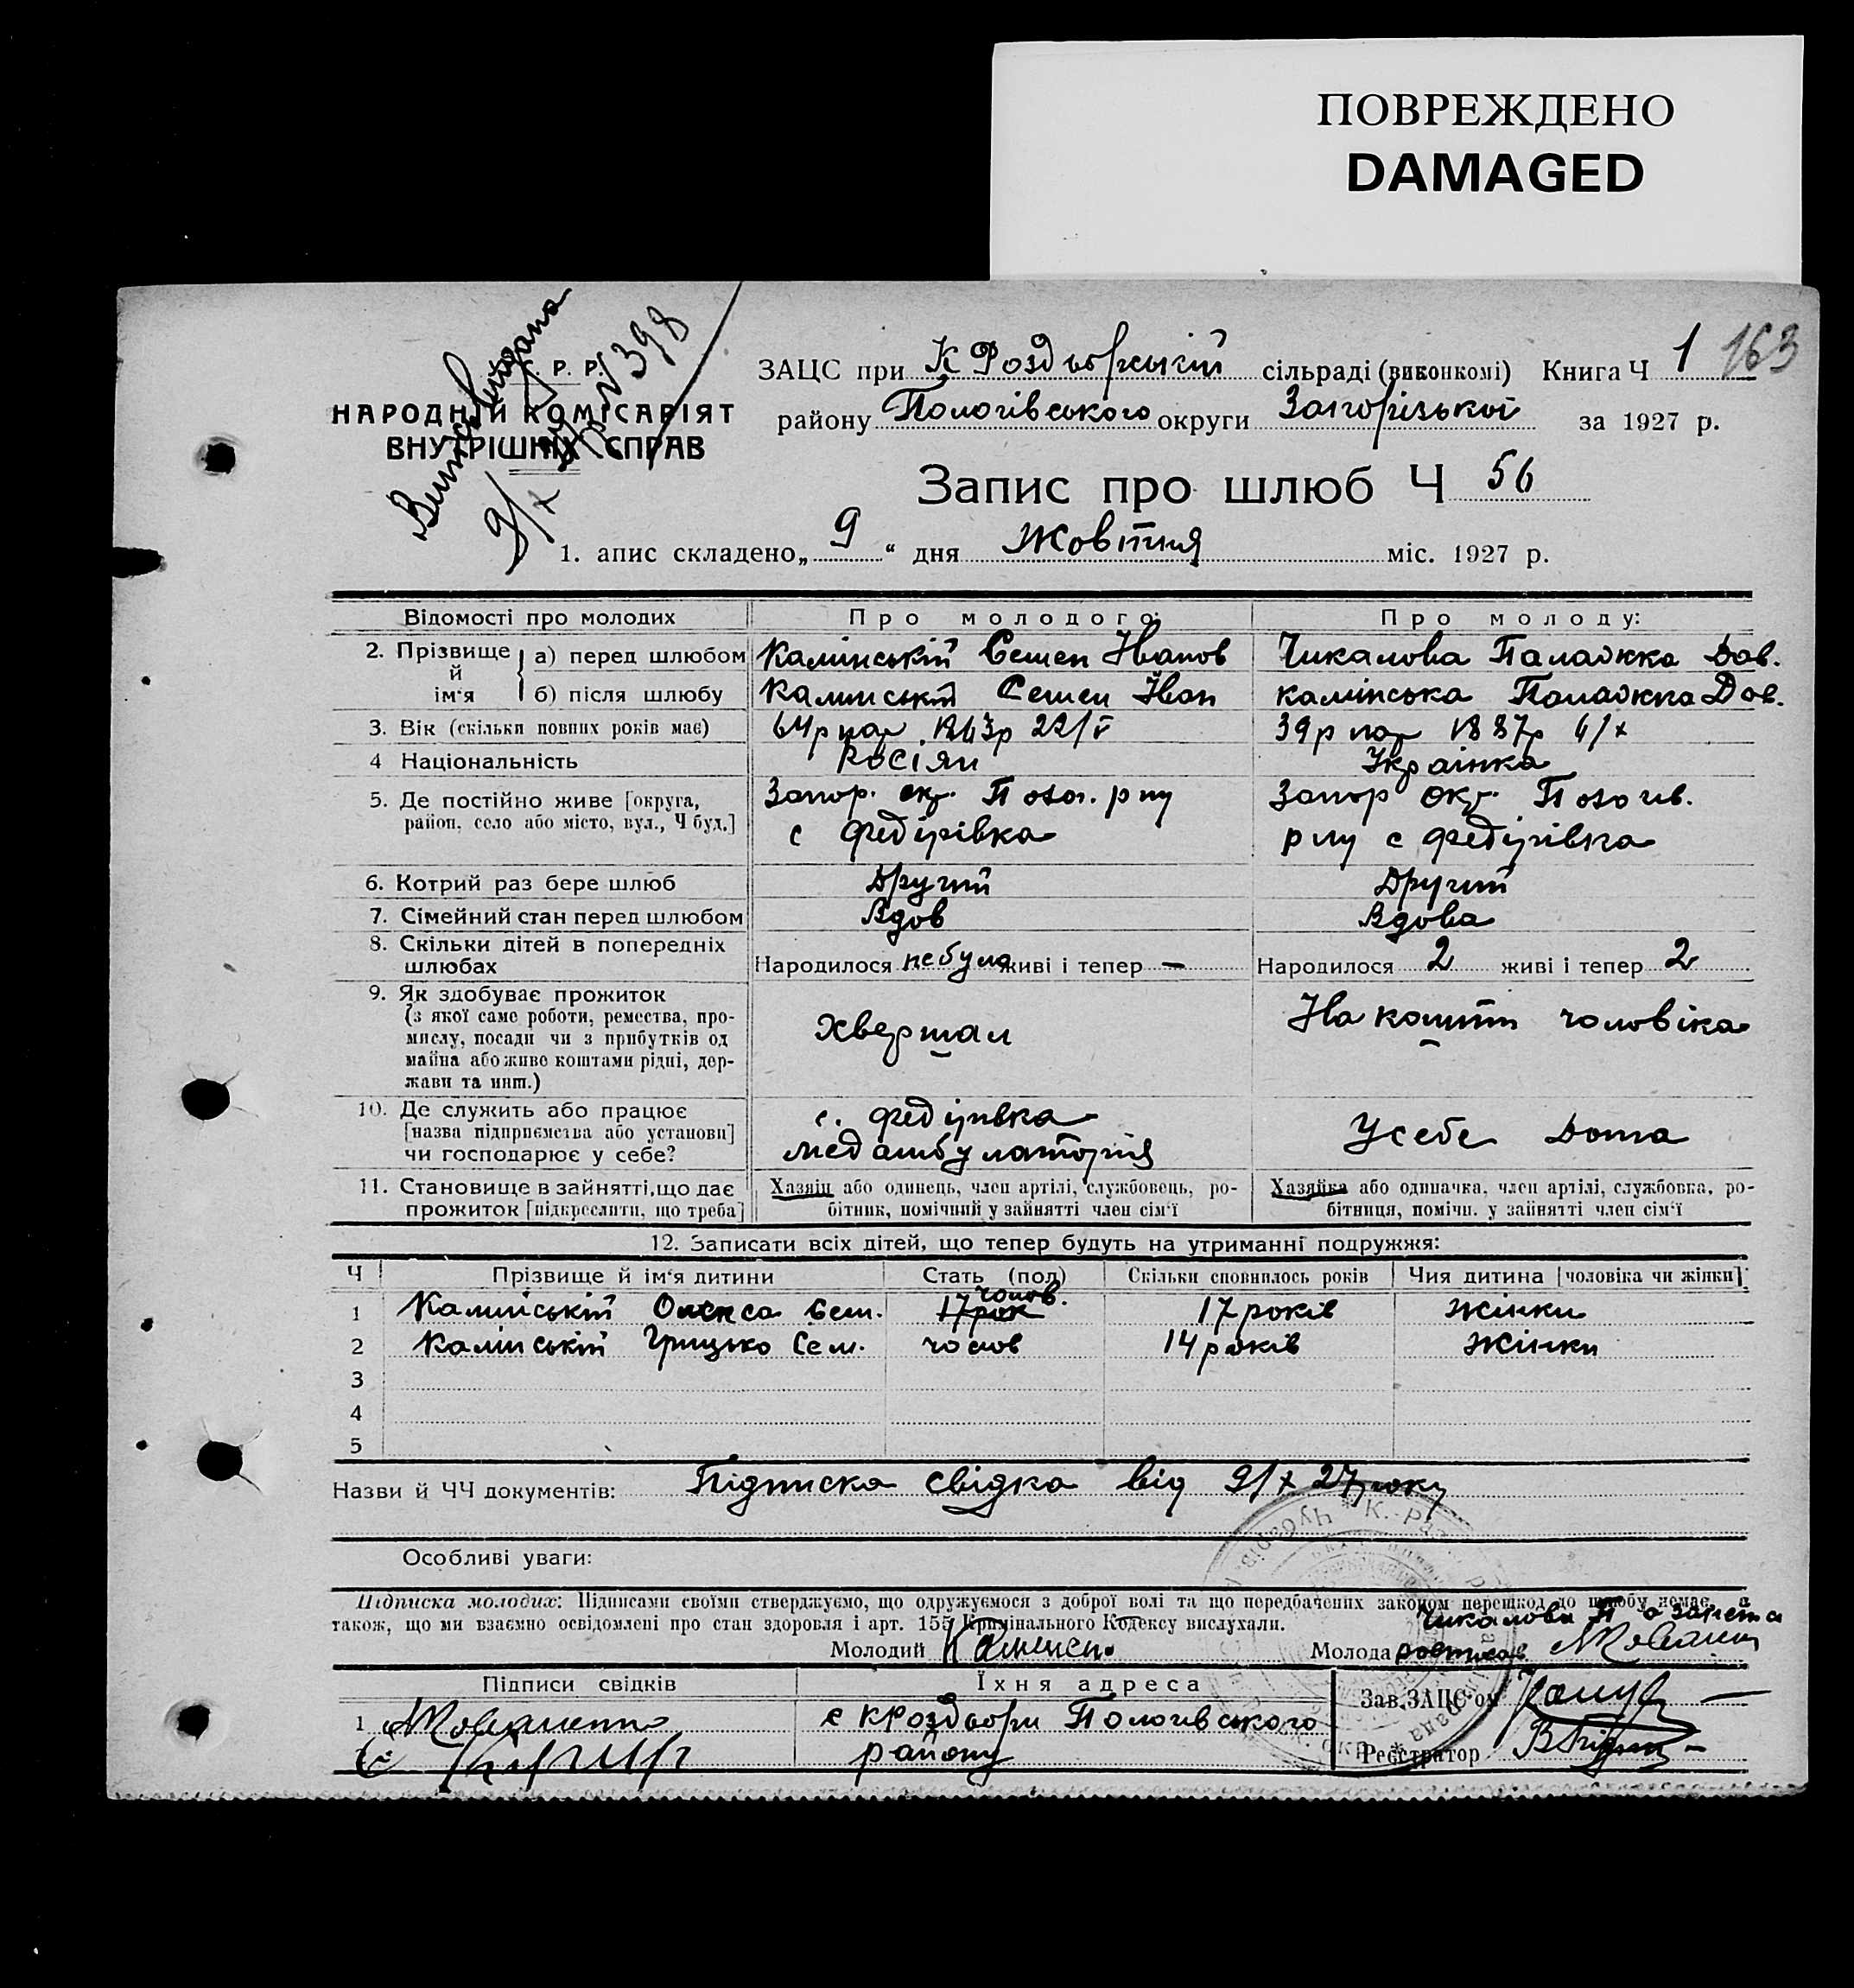 ПОВРЕЖДЕНО
DAMAGED
Витяг видана
9/X № 398
Р. Р.
НАРОДНІЙ КОМІСАРІЯТ
ВНУТРІШНІХ СПРАВ
ЗАЦС при К Роздорській сільраді (виконкомі) Книга Ч 1 163
району Пологівського округи Запорізької за 1927 р.
Запис про шлюб Ч 56
1. апис складено „ 9 “ дня Жовтня міс. 1927 р.
Відомості про молодих Про молодого: Про молоду:
2. Прізвище й ім‘я а) перед шлюбом Камінський Семен Іванов Чикалова Палажка Дав.
б) після шлюбу Камінський Семен Іван Камінська Палажка Дав.
3. Вік (скільки повних років має) 64р нар. 1863р 22/V 39р нар 1887р 4/X
4 Національність Росіян Українка
5. Де постійно живе [округа, район, село або місто, вул., Ч буд.] Запор. окр. Полог. р ну с Федірівка Запор окр. Пологив. р ну с Федірівка
6. Котрий раз бере шлюб Другий Другий
7. Сімейний стан перед шлюбом Вдов Вдова
8. Скільки дітей в попередніх шлюбах Народилося небуло живі і тепер — Народилося 2 живі і тепер 2
9. Як здобуває прожиток (з якої саме роботи, ремества, промислу, посади чи з прибутків од майна або живе коштами рідні, держави та инш.) Хвершал На кошти чоловіка
10. Де служить або працює [назва підприємства або установи] чи господарює у себе? с. Федірівка медамбулаторія У себе дома
11. Становище в зайнятті, що дає прожиток [підкреслити, що треба] Хазяін або одинець, член артілі, службовець, робітник, помічний у зайнятті член сім‘ї Хазяйка або одиначка, член артілі, службовка, робітниця, помічн. у зайнятті член сім‘ї
12. Записати всіх дітей, що тепер будуть на утриманні подружжя:
Ч Прізвище й ім‘я дитини Стать (пол) Скільки сповнилось років Чия дитина [чоловіка чи жінки]:
1 Камінській Олекса Сем. 17 рок чолов. 17 років Жінки
2 Камінській Грицько Сем. чолов 14 років Жінки
3
4
5
Назви й ЧЧ документів: Підписка свідка від 9/X 27 року
Особливі уваги:
Підписка молодих: Підписами своїми стверджуємо, що одружуємося з доброї волі та що передбачених законом перешкод до шлюбу немає, а
також, що ми взаємно освідомлені про стан здоровля і арт. 155 Кримінального Кодексу вислухали.
Чикалова
Молодий Молода
Підписи свідків Їхня адреса Зав. ЗАЦС‘ом
1 с КРоздори Пологивського
району Реєстратор